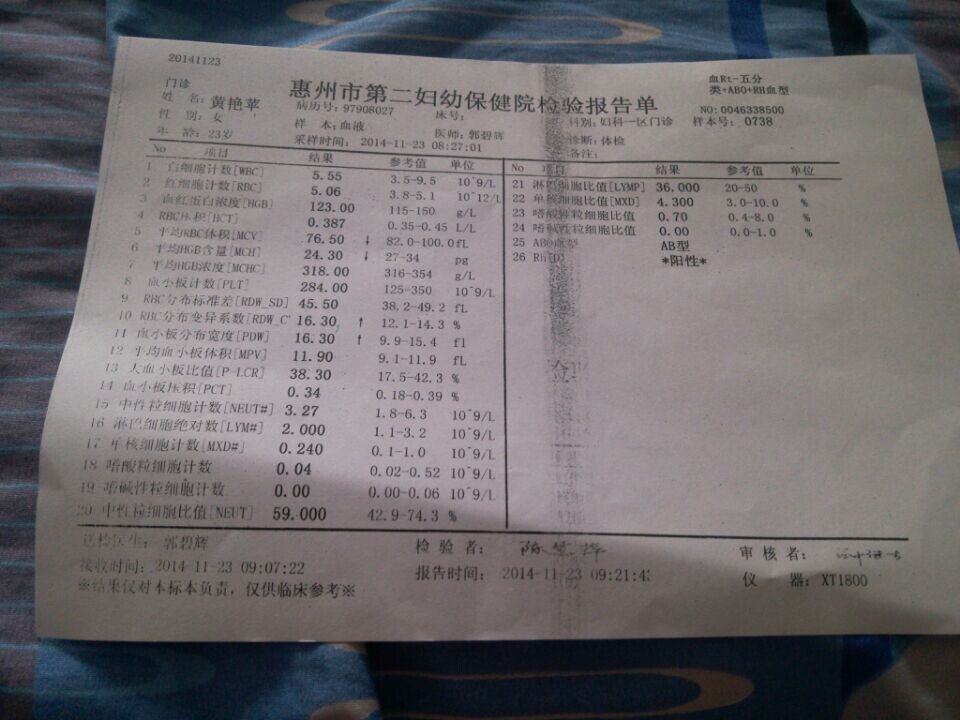 20141123
血Rt-五分
类+ABO+RH血型
惠州市第二妇幼保健院检验报告单
门诊
姓 名: 黄艳苹
病历号: 97908027
床号:
NO: 0046338500
性 别: 女
样 本: 血液
医师: 郭碧辉
科别: 妇科一区门诊
样本号: 0738
年 龄: 23岁
采样时间: 2014-11-23 08:27:01
诊断: 体检
备注:
No 项目 结果 参考值 单位
1 白细胞计数[WBC] 5.55 3.5-9.5 10^9/L
2 红细胞计数[RBC] 5.06 3.8-5.1 10^12/L
3 血红蛋白浓度[HGB] 123.00 115-150 g/L
4 RBC体积[HCT] 0.387 0.35-0.45 L/L
5 平均RBC体积[MCV] 76.50 ↓ 82.0-100.0 fL
6 平均HGB含量[MCH] 24.30 ↓ 27-34 pg
7 平均HGB浓度[MCHC] 318.00 316-354 g/L
8 血小板计数[PLT] 284.00 125-350 10^9/L
9 RBC分布标准差[RDW_SD] 45.50 38.2-49.2 fL
10 RBC分布变异系数[RDW_C 16.30 ↑ 12.1-14.3 %
11 血小板分布宽度[PDW] 16.30 ↑ 9.9-15.4 fl
12 平均血小板体积[MPV] 11.90 9.1-11.9 fL
13 大血小板比值[P-LCR] 38.30 17.5-42.3 %
14 血小板压积[PCT] 0.34 0.18-0.39 %
15 中性粒细胞计数[NEUT#] 3.27 1.8-6.3 10^9/L
16 淋巴细胞绝对数[LYM#] 2.000 1.1-3.2 10^9/L
17 单核细胞计数[MXD#] 0.240 0.1-1.0 10^9/L
18 嗜酸粒细胞计数 0.04 0.02-0.52 10^9/L
19 嗜碱性粒细胞计数 0.00 0.00-0.06 10^9/L
20 中性粒细胞比值[NEUT] 59.000 42.9-74.3 %
No 项目 结果 参考值 单位
21 淋巴细胞比值[LYMP] 36.000 20-50 %
22 单核细胞比值[MXD] 4.300 3.0-10.0 %
23 嗜酸性粒细胞比值 0.70 0.4-8.0 %
24 嗜碱性粒细胞比值 0.00 0.0-1.0 %
25 ABO血型 AB型
26 Rh(D) *阳性*
送检医生: 郭碧辉
检 验 者:
审 核 者:
接收时间: 2014-11-23 09:07:22
报告时间: 2014-11-23 09:21:43
仪 器: XT1800
※结果仅对本标本负责,仅供临床参考※